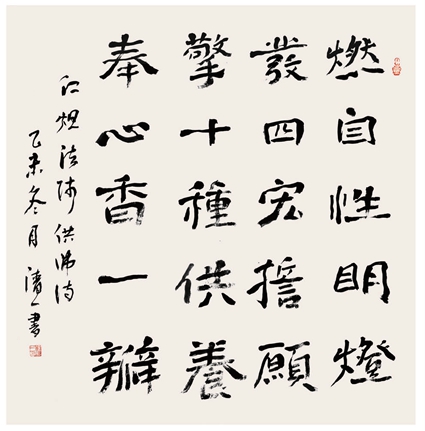 燃自性明燈
發四宏誓願
擎十種供養
奉心香一瓣
法師供佛詩
乙未冬月清一書